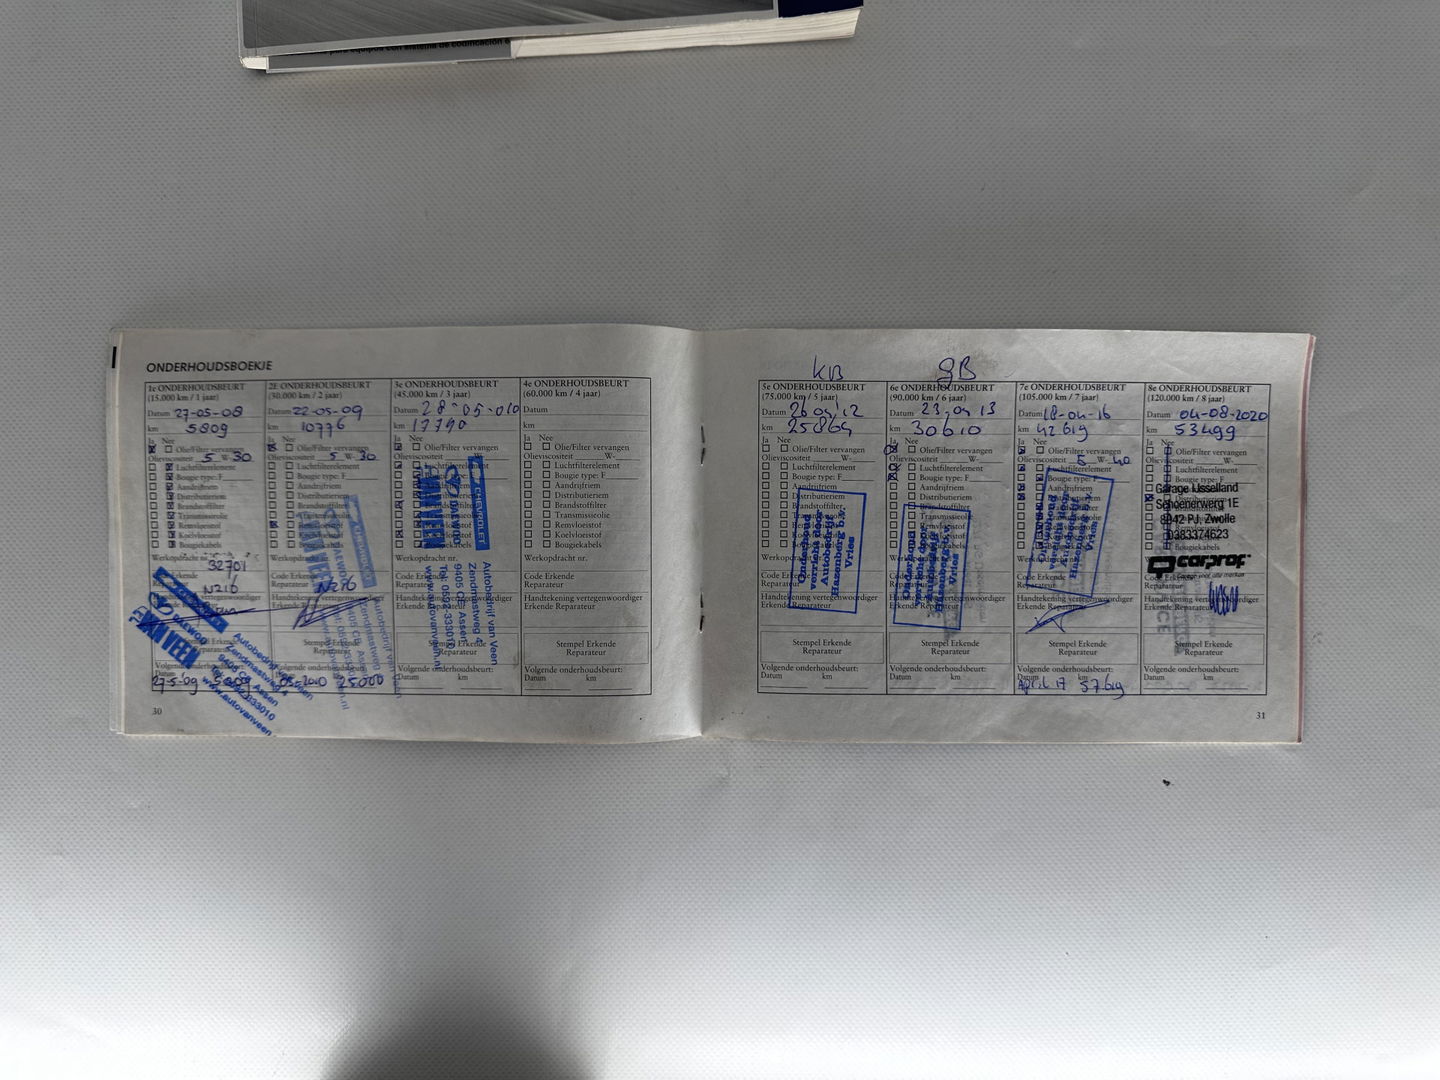 para equipos con sistema de codificación e
ONDERHOUDSBOEKJE
1e ONDERHOUDSBEURT
(15.000 km / 1 jaar)
Datum 27-05-08
km 5809
Ja Nee
Olie/Filter vervangen
Olieviscositeit 5 W- 30
Luchtfilterelement
Bougie type: F
Aandrijfriem
Distributieriem
Brandstoffilter
Transmissieolie
Remvloeistof
Koelvloeistof
Bougiekabels
Werkopdracht nr.
32701
N216
DAEWOO
VAN VEEN
Autobedrijf van Veen
Zendmastweg 4
9405 CE Assen
www.autovanveen
Volgende onderhoudsbeurt:
Datum km
27-5-09
2E ONDERHOUDSBEURT
(30.000 km / 2 jaar)
Datum 22-05-09
km 10776
Ja Nee
Olie/Filter vervangen
Olieviscositeit 5 W 30
Luchtfilterelement
Bougie type: F
Aandrijfriem
Distributieriem
Brandstoffilter
Remvloeistof
Koelvloeistof
Werkopdracht nr.
Code Erkende
Reparateur N216
Handtekening vertegenwoordiger
Volgende onderhoudsbeurt:
05-2010 25000
3e ONDERHOUDSBEURT
(45.000 km / 3 jaar)
Datum 28-05-010
km 17790
Ja Nee
Olie/Filter vervangen
Olieviscositeit W-
Luchtfilterelement
CHEVROLET
DAEWOO
VAN VEEN
Autobedrijf van Veen
Zendmastweg 4
9405 CE Assen
Tel. 0592-333010
www.autovanveen.nl
Werkopdracht nr.
Code Erkende
Reparateur
Handtekening vertegenwoordiger
Erkende Reparateur
Stempel Erkende
Reparateur
Volgende onderhoudsbeurt:
Datum km
4e ONDERHOUDSBEURT
(60.000 km / 4 jaar)
Datum
km
Ja Nee
Olie/Filter vervangen
Olieviscositeit W-
Luchtfilterelement
Bougie type: F
Aandrijfriem
Distributieriem
Brandstoffilter
Transmissieolie
Remvloeistof
Koelvloeistof
Bougiekabels
Werkopdracht nr.
Code Erkende
Reparateur
Handtekening vertegenwoordiger
Erkende Reparateur
Stempel Erkende
Reparateur
Volgende onderhoudsbeurt:
Datum km
30
KB
5e ONDERHOUDSBEURT
(75.000 km / 5 jaar)
Datum 26 04 12
km 25864
Ja Nee
Olie/Filter vervangen
Olieviscositeit W-
Luchtfilterelement
Bougie type: F
Aandrijfriem
Distributieriem
Onderhoud
verricht door
Autobedrijf
Hazenberg b.v.
Vries
Werkopdracht nr.
Code Erkende
Reparateur
Handtekening vertegenwoordiger
Erkende Reparateur
Stempel Erkende
Reparateur
Volgende onderhoudsbeurt:
Datum km
gB
6e ONDERHOUDSBEURT
(90.000 km / 6 jaar)
Datum 23,04 13
km 30610
Ja Nee
Olie/Filter vervangen
Olieviscositeit W-
Luchtfilterelement
Bougie type: F
Aandrijfriem
Distributieriem
Brandstoffilter
Transmissieolie
Onderhoud
verricht door
Autobedrijf
Hazenberg b.v.
Vries
Werkopdracht nr.
Code Erkende
Reparateur
Handtekening vertegenwoordiger
Erkende Reparateur
Stempel Erkende
Reparateur
Volgende onderhoudsbeurt:
Datum km
7e ONDERHOUDSBEURT
(105.000 km / 7 jaar)
Datum 18-04-16
km 42619
Ja Nee
Olie/Filter vervangen
Olieviscositeit 5 W- 40
Luchtfilterelement
Bougie type: F
Aandrijfriem
Distributieriem
Onderhoud
verricht door
Autobedrijf
Hazenberg b.v.
Vries
Werkopdracht nr.
Code Erkende
Reparateur
Handtekening vertegenwoordiger
Erkende Reparateur
Stempel Erkende
Reparateur
Volgende onderhoudsbeurt:
Datum km
April 17 57619
8e ONDERHOUDSBEURT
(120.000 km / 8 jaar)
Datum 04-08-2020
km 53499
Ja Nee
Olie/Filter vervangen
Olieviscositeit W-
Luchtfilterelement
Bougie type: F
Garage IJsselland
Schoenerweg 1E
8042 PJ, Zwolle
0383374623
carprof
Garage voor alle merken
Werkopdracht nr.
Code Erkende
Reparateur
Handtekening vertegenwoordiger
Erkende Reparateur
Stempel Erkende
Reparateur
Volgende onderhoudsbeurt:
Datum km
31